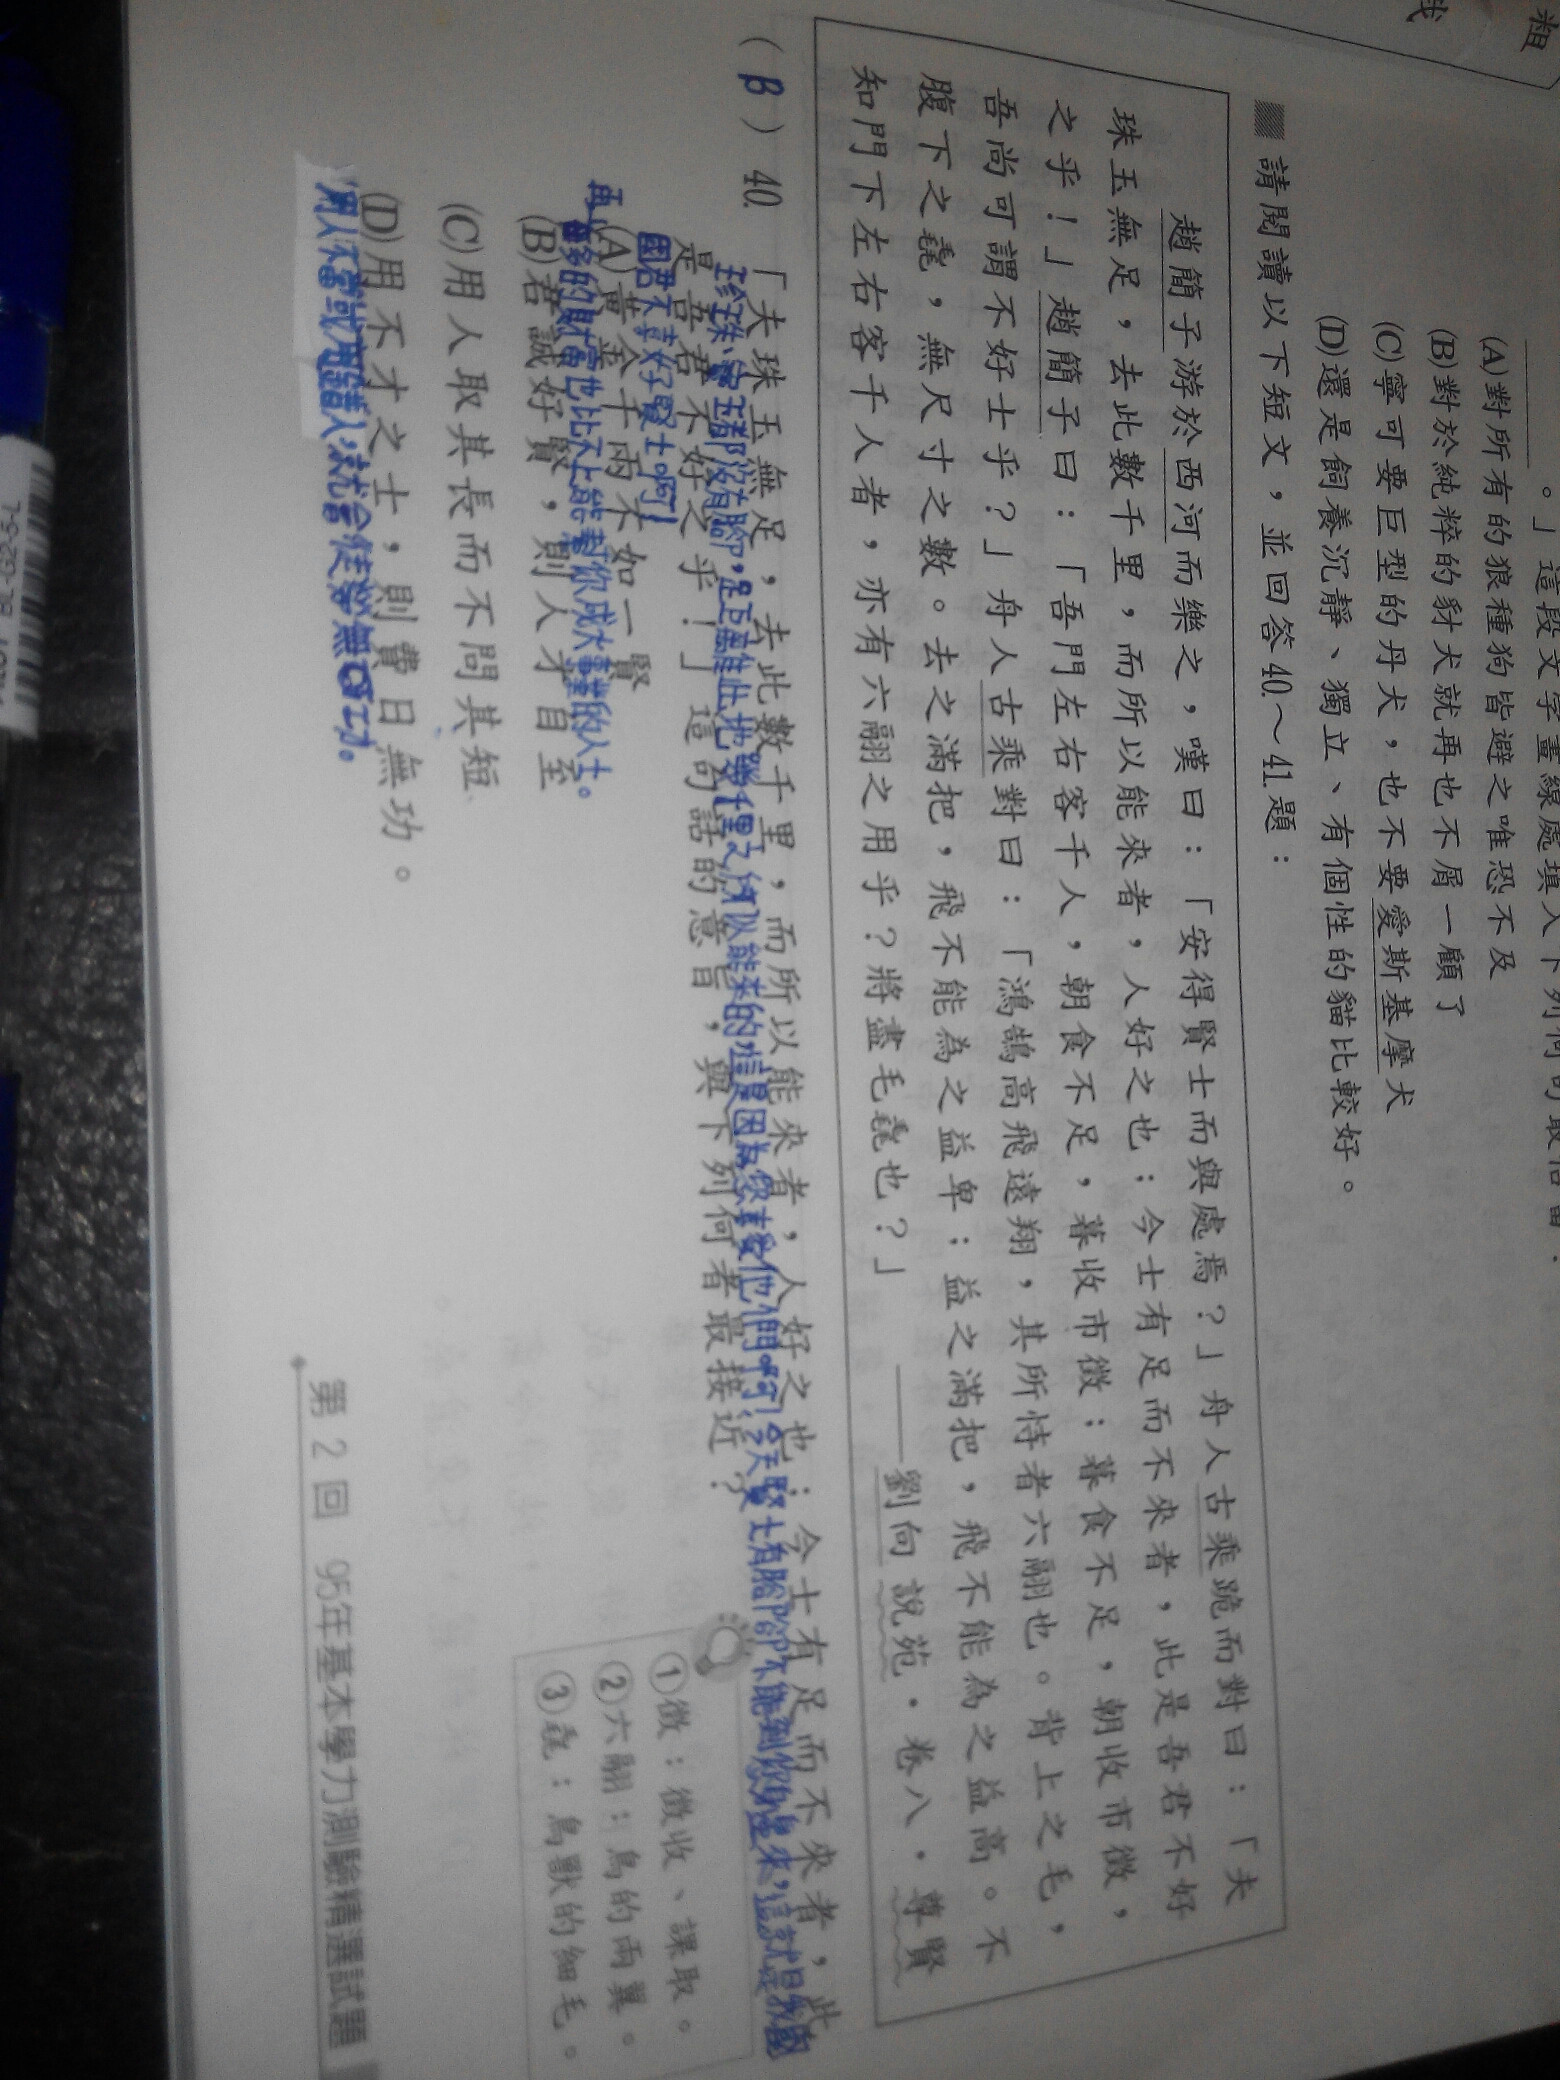 粗
。」這段文字畫線處填入下列何句最恰當？
(A)對所有的狼種狗皆避之唯恐不及
(B)對於純粹的豺犬就再也不屑一顧了
(C)寧可要巨型的丹犬，也不要愛斯基摩犬
(D)還是飼養沉靜、獨立、有個性的貓比較好。
請閱讀以下短文，並回答40.～41.題：
趙簡子游於西河而樂之，嘆曰：「安得賢士而與處焉？」舟人古乘跪而對曰：「夫
珠玉無足，去此數千里，而所以能來者，人好之也；今士有足而不來者，此是吾君不好
之乎！」趙簡子曰：「吾門左右客千人，朝食不足，暮收市徵；暮食不足，朝收市徵，
吾尚可謂不好士乎？」舟人古乘對曰：「鴻鵠高飛遠翔，其所恃者六翮也。背上之毛，
腹下之毳，無尺寸之數。去之滿把，飛不能為之益卑；益之滿把，飛不能為之益高。不
知門下左右客千人者，亦有六翮之用乎？將盡毛毳也？」——劉向 說苑．卷八．尊賢
(B)40.「夫珠玉無足，去此數千里，而所以能來者，人好之也；今士有足而不來者，此
珍珠、寶玉都沒有腳，距離此地幾千里之 所以能來的 是因為您喜愛他們啊！今天賢士有腳卻不能到你身邊來，這就是我國
是吾君不好之乎！」這句話的意旨，與下列何者最接近？
國君不喜好賢士啊！
(A)黃金千兩不如一賢
再多的財富也比不上能幫你成大事業的人士。
(B)君誠好賢，則人才自至
(C)用人取其長而不問其短
(D)用不才之士，則費日無功。
用人不當或用錯人，就會徒勞無功。
①徵：徵收、課取。
②六翮：鳥的兩翼。
③毳：鳥獸的細毛。
第2回 95年基本學力測驗精選試題